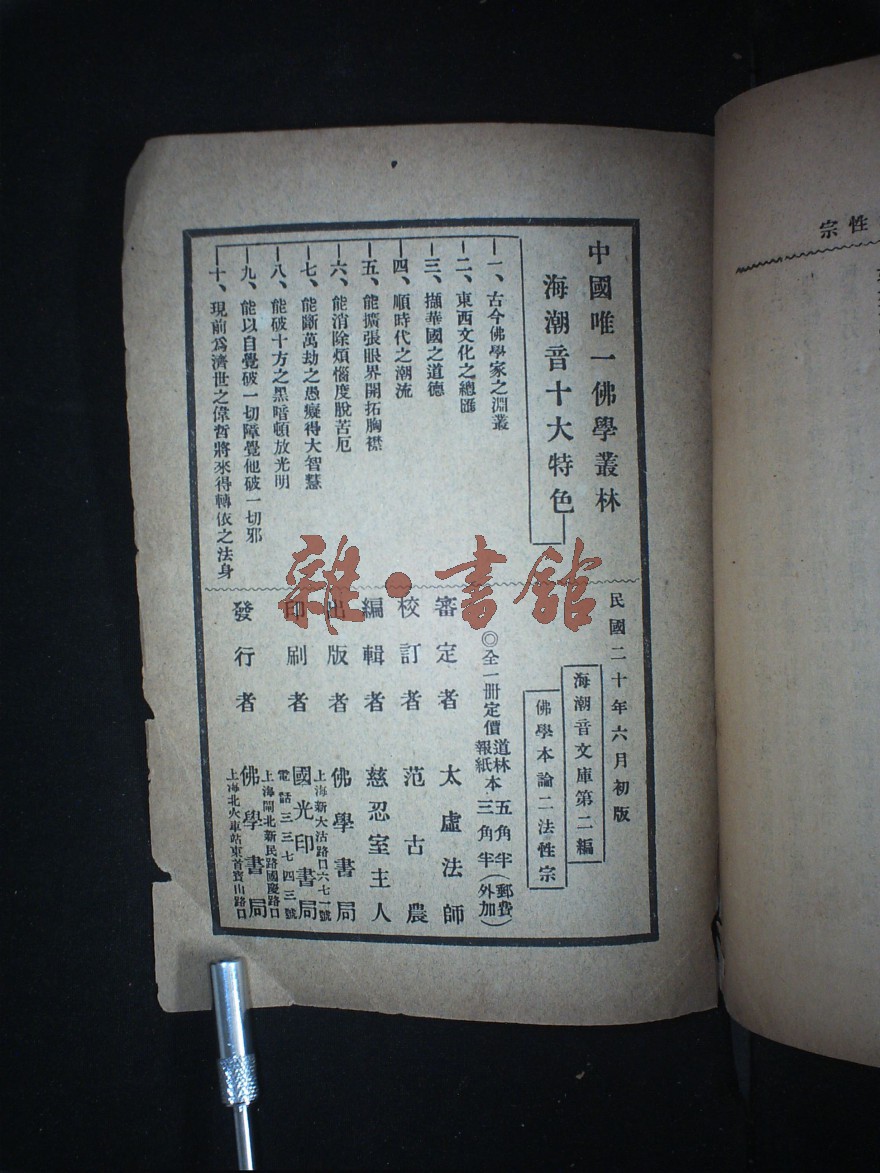 中國唯一佛學叢林
海潮音十大特色
一、古今佛學家之淵叢
二、東西文化之總匯
三、擷華國之道德
四、順時代之潮流
五、能擴張眼界開拓胸襟
六、能消除煩惱度脫苦厄
七、能斷萬劫之愚癡得大智慧
八、能破十方之黑暗頓放光明
九、能以自覺破一切障覺他破一切邪
十、現前爲濟世之偉哲將來得轉依之法身
民國二十年六月初版
海潮音文庫第二編
佛學本論二法性宗
◎全一冊定價 道林本 五角半 (郵費
報紙 三角半 外加)
審定者 太虛法師
校訂者 范古農
編輯者 慈忍室主人
出版者 佛學書局
上海新大沽路口六七一號
印刷者 國光印書局
電話三三七四三號
上海閘北新民路國慶路口
發行者 佛學書局
上海北火車站東首寶山路口
雜·書館
性宗